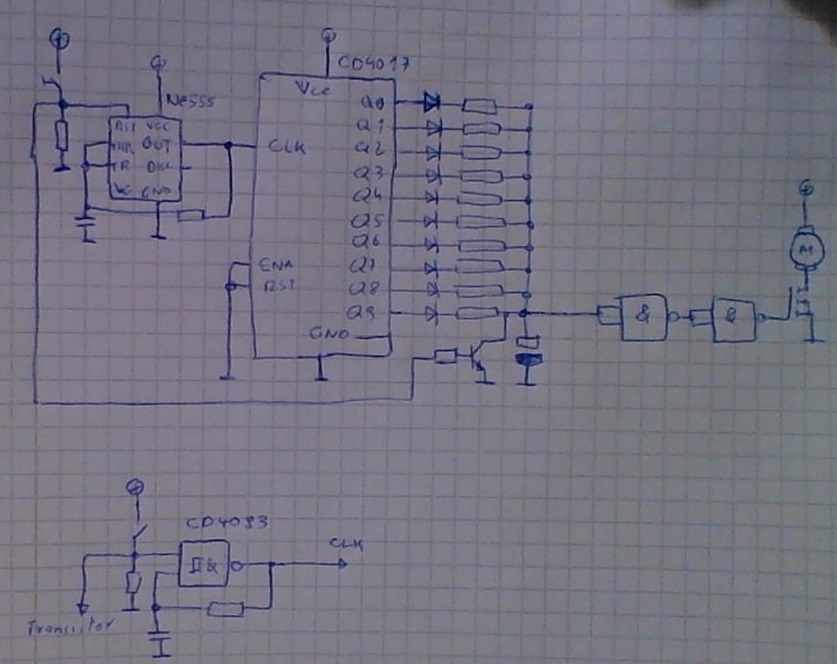 CD4017
NE555
Vcc
RST VCC
THR OUT
TR DIS
VC GND
CLK
Q0
Q1
Q2
Q3
Q4
Q5
Q6
Q7
Q8
Q9
ENA
RST
GND
&
&
M
CD4093
&
CLK
Transistor